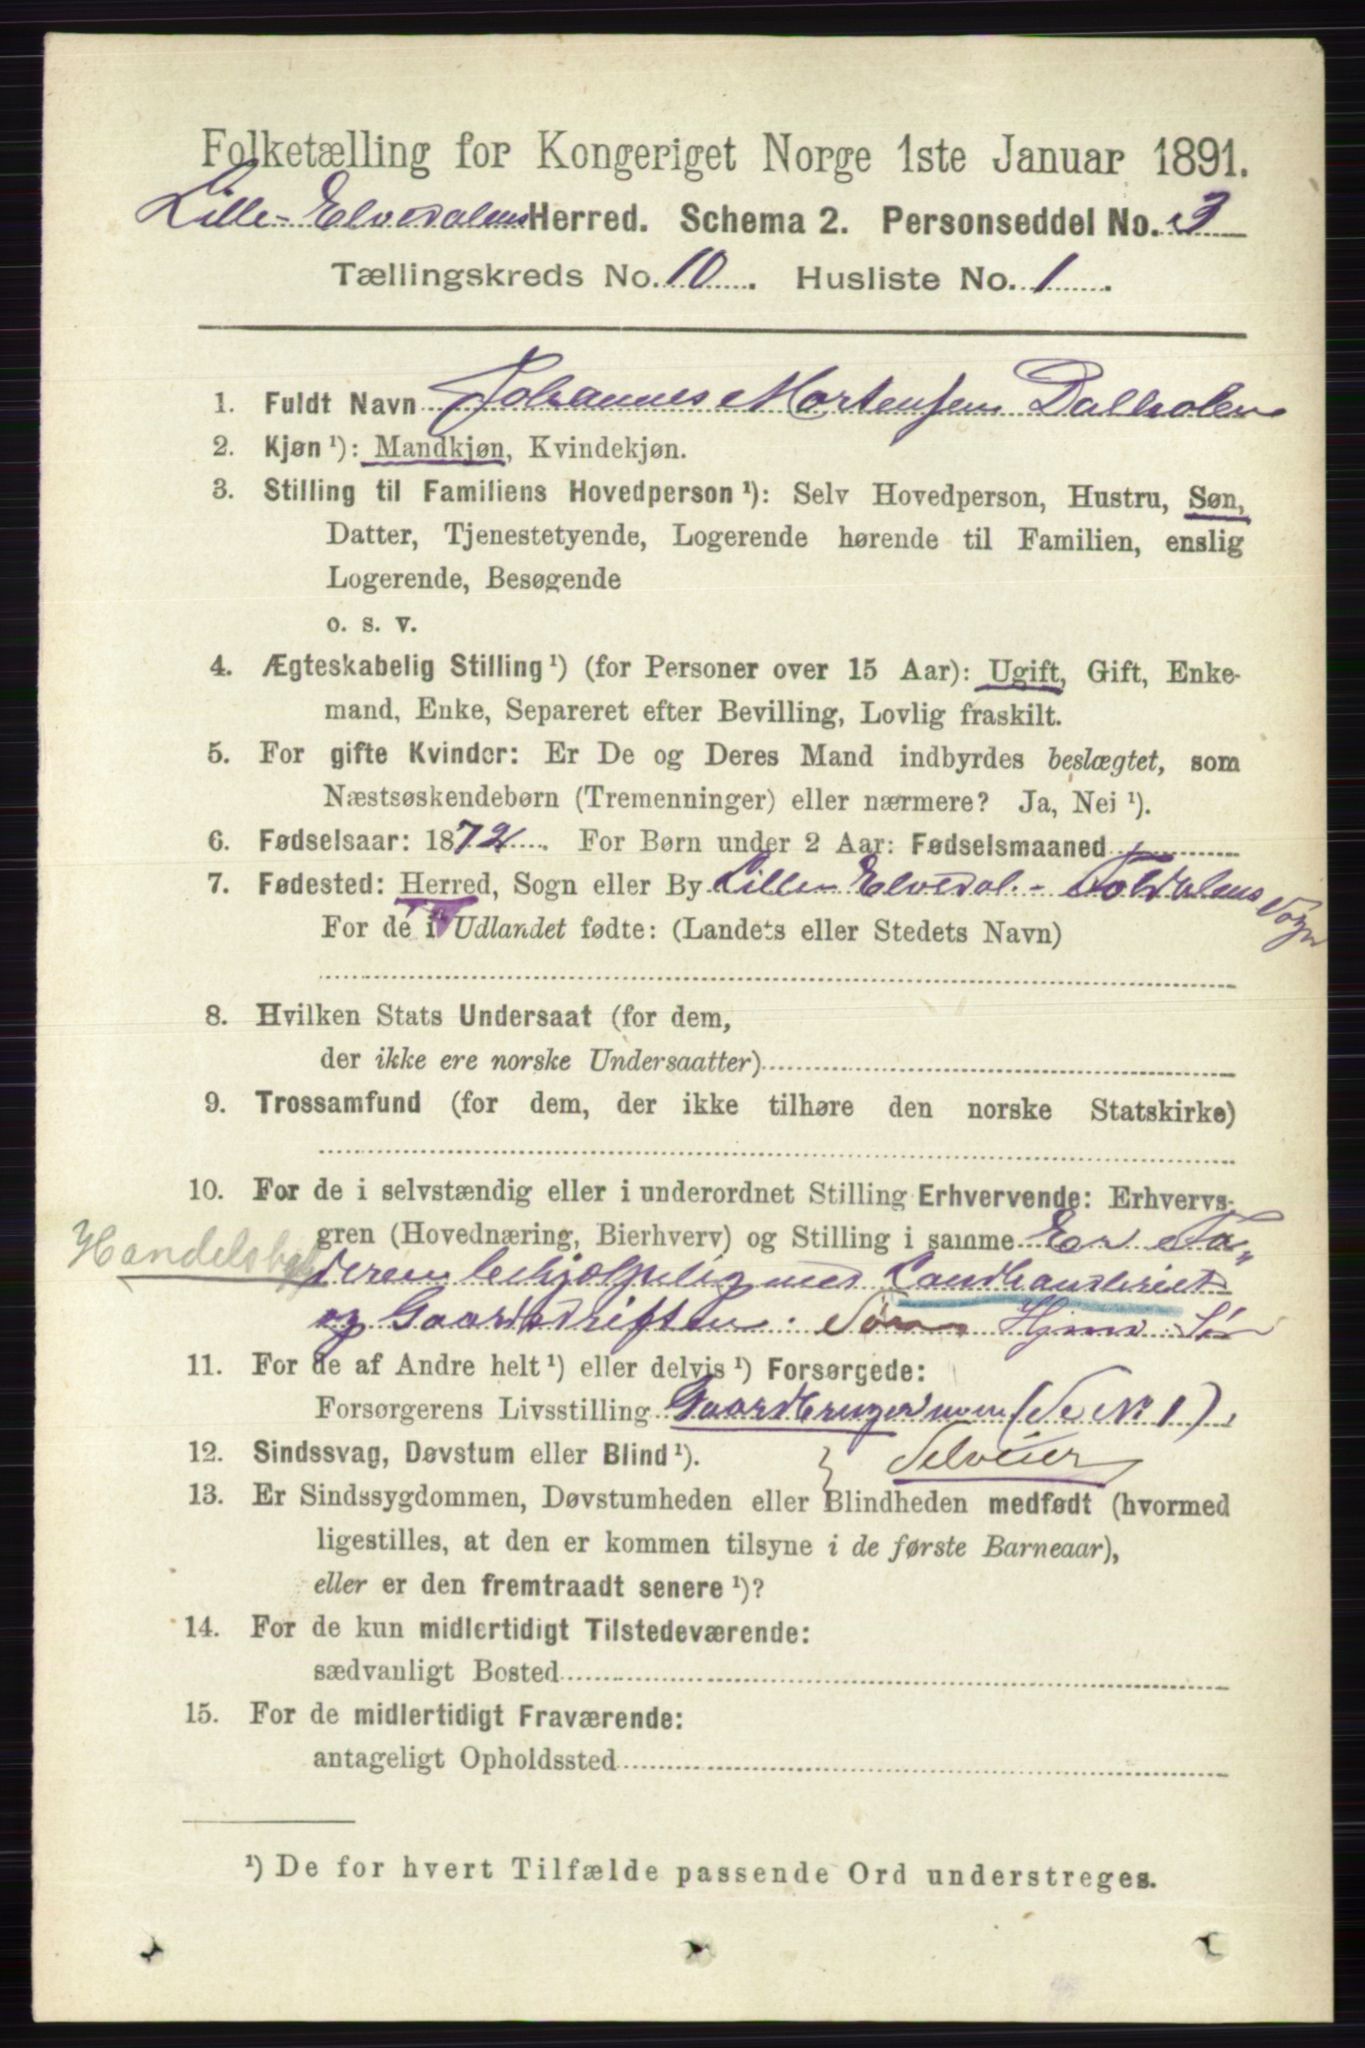 Folketælling for Kongeriget Norge 1ste Januar 1891.
Lille-Elvedalens Herred. Schema 2. Personseddel No. 3
Tællingskreds No. 10. Husliste No. 1.
1. Fuldt Navn Johannes Mortensen Dalholen
2. Kjøn ¹): Mandkjøn, Kvindekjøn.
3. Stilling til Familiens Hovedperson ¹): Selv Hovedperson, Hustru, Søn,
Datter, Tjenestetyende, Logerende hørende til Familien, enslig
Logerende, Besøgende
o. s. v.
4. Ægteskabelig Stilling ¹) (for Personer over 15 Aar): Ugift, Gift, Enke-
mand, Enke, Separeret efter Bevilling, Lovlig fraskilt.
5. For gifte Kvinder: Er De og Deres Mand indbyrdes beslægtet, som
Næstsøskendebørn (Tremenninger) eller nærmere? Ja, Nei ¹).
6. Fødselsaar: 1872. For Børn under 2 Aar: Fødselsmaaned
7. Fødested: Herred, Sogn eller By Lille-Elvedal - Foldalens Sogn
For de i Udlandet fødte: (Landets eller Stedets Navn)
8. Hvilken Stats Undersaat (for dem,
der ikke ere norske Undersaatter)
9. Trossamfund (for dem, der ikke tilhøre den norske Statskirke)
10. For de i selvstændig eller i underordnet Stilling Erhvervende: Erhvervs-
gren (Hovednæring, Bierhverv) og Stilling i samme Er Fa-
deren behjælpelig med Landhandleriet
og Gaardsdriften.
11. For de af Andre helt ¹) eller delvis ¹) Forsørgede:
Forsørgerens Livsstilling Gaardbruger (Se No 1)
12. Sindssvag, Døvstum eller Blind ¹). Selveier
13. Er Sindssygdommen, Døvstumheden eller Blindheden medfødt (hvormed
ligestilles, at den er kommen tilsyne i de første Barneaar),
eller er den fremtraadt senere ¹)?
14. For de kun midlertidigt Tilstedeværende:
sædvanligt Bosted
15. For de midlertidigt Fraværende:
antageligt Opholdssted
¹) De for hvert Tilfælde passende Ord understreges.